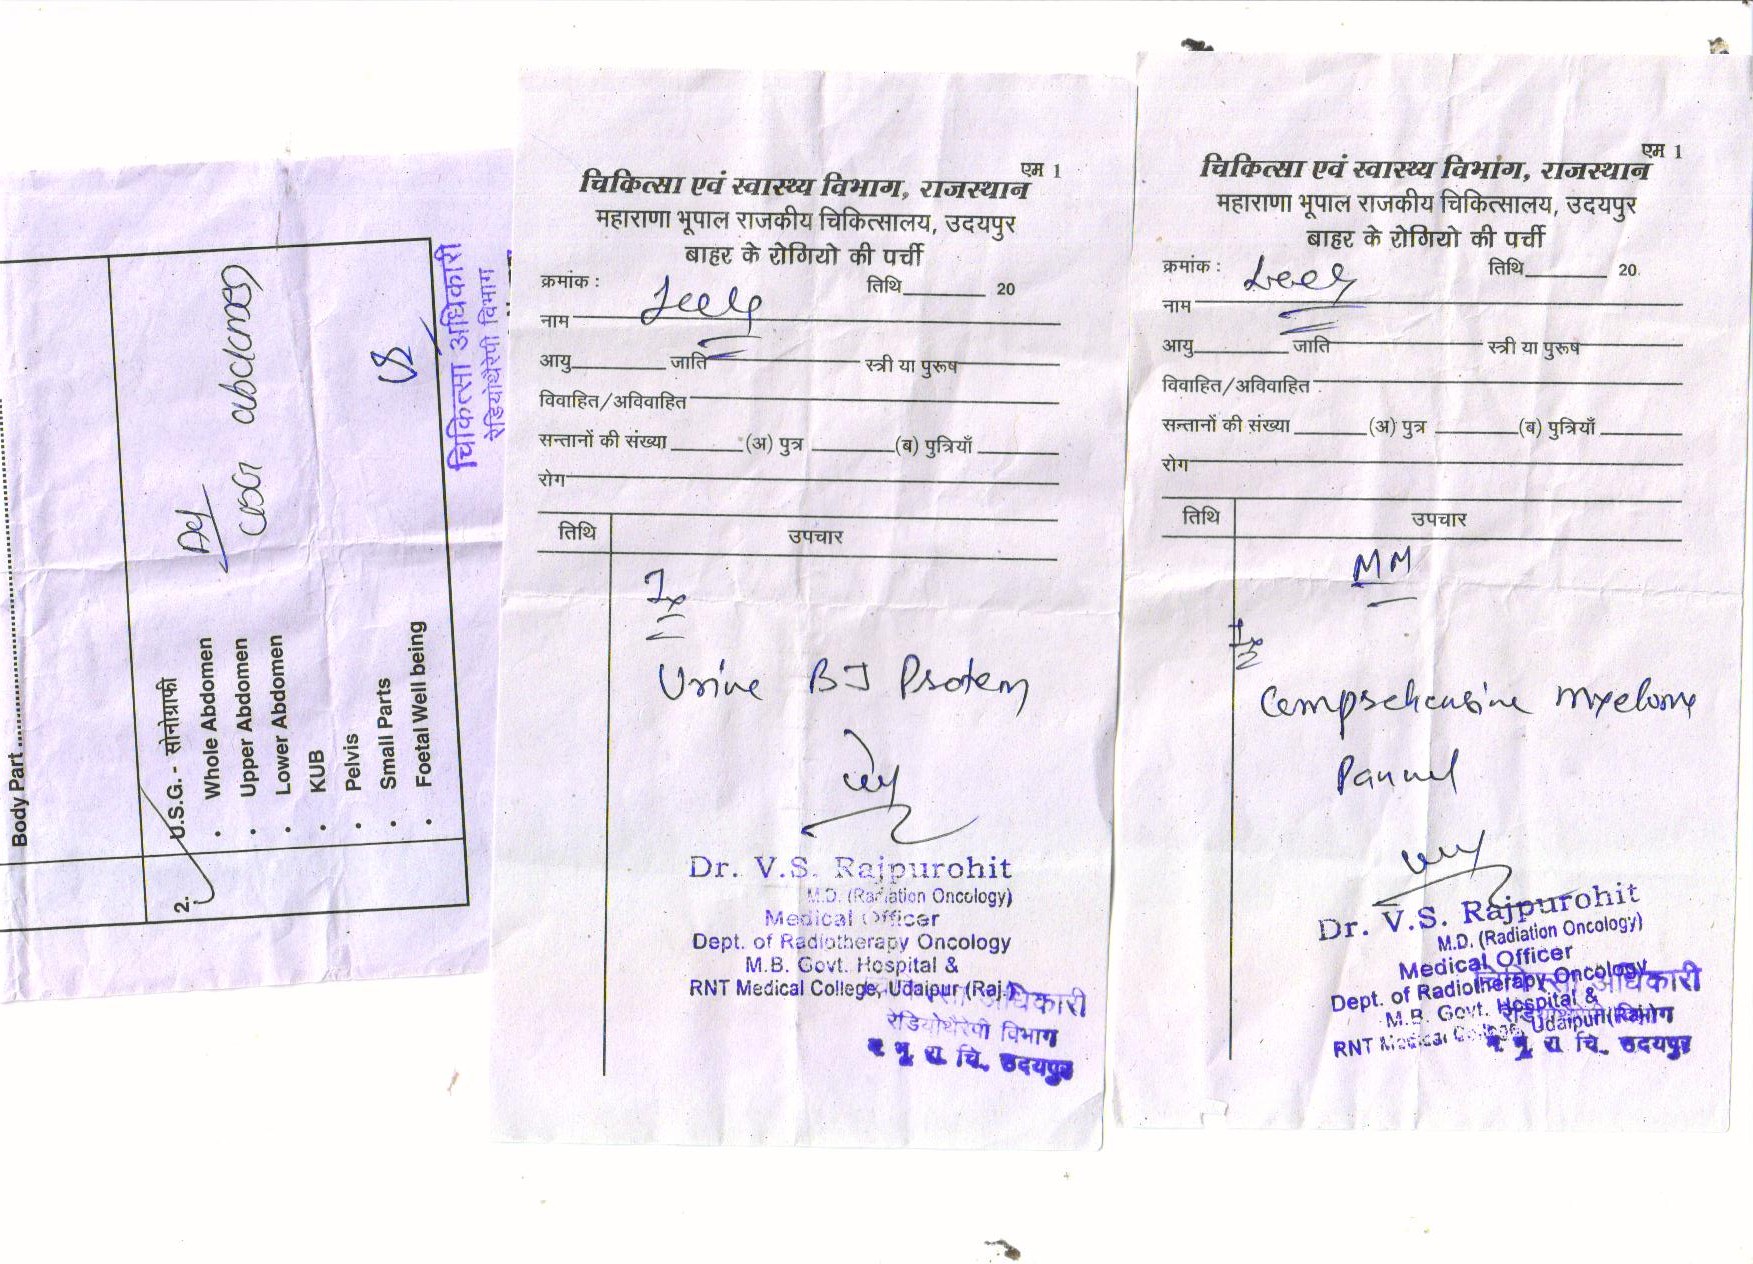 Body Part
2.
U.S.G. - सोनोग्राफी
• Whole Abdomen
• Upper Abdomen
• Lower Abdomen
• KUB
• Pelvis
• Small Parts
• Foetal Well being
Adv
abdomen
चिकित्सा अधिकारी
रेडियोथैरेपी विभाग
एम 1
चिकित्सा एवं स्वास्थ्य विभाग, राजस्थान
महाराणा भूपाल राजकीय चिकित्सालय, उदयपुर
बाहर के रोगियो की पर्ची
क्रमांक : तिथि 20
नाम
आयु जाति स्त्री या पुरूष
विवाहित/अविवाहित
सन्तानों की संख्या (अ) पुत्र (ब) पुत्रियाँ
रोग
तिथि उपचार
Ix
Urine BJ Protein
Dr. V.S. Rajpurohit
M.D. (Radiation Oncology)
Medical Officer
Dept. of Radiotherapy Oncology
M.B. Govt. Hospital &
RNT Medical College, Udaipur (Raj.)
चिकित्सा अधिकारी
रेडियोथैरेपी विभाग
म. भू. रा. चि. उदयपुर
एम 1
चिकित्सा एवं स्वास्थ्य विभाग, राजस्थान
महाराणा भूपाल राजकीय चिकित्सालय, उदयपुर
बाहर के रोगियो की पर्ची
क्रमांक : तिथि 20
नाम
आयु जाति स्त्री या पुरूष
विवाहित/अविवाहित
सन्तानों की संख्या (अ) पुत्र (ब) पुत्रियाँ
रोग
तिथि उपचार
MM
Ix
Comprehensive Myeloma
Pannel
Dr. V.S. Rajpurohit
M.D. (Radiation Oncology)
Medical Officer
Dept. of Radiotherapy Oncology
M.B. Govt. Hospital &
RNT Medical College, Udaipur (Raj.)
चिकित्सा अधिकारी
रेडियोथैरेपी विभाग
म. भू. रा. चि. उदयपुर